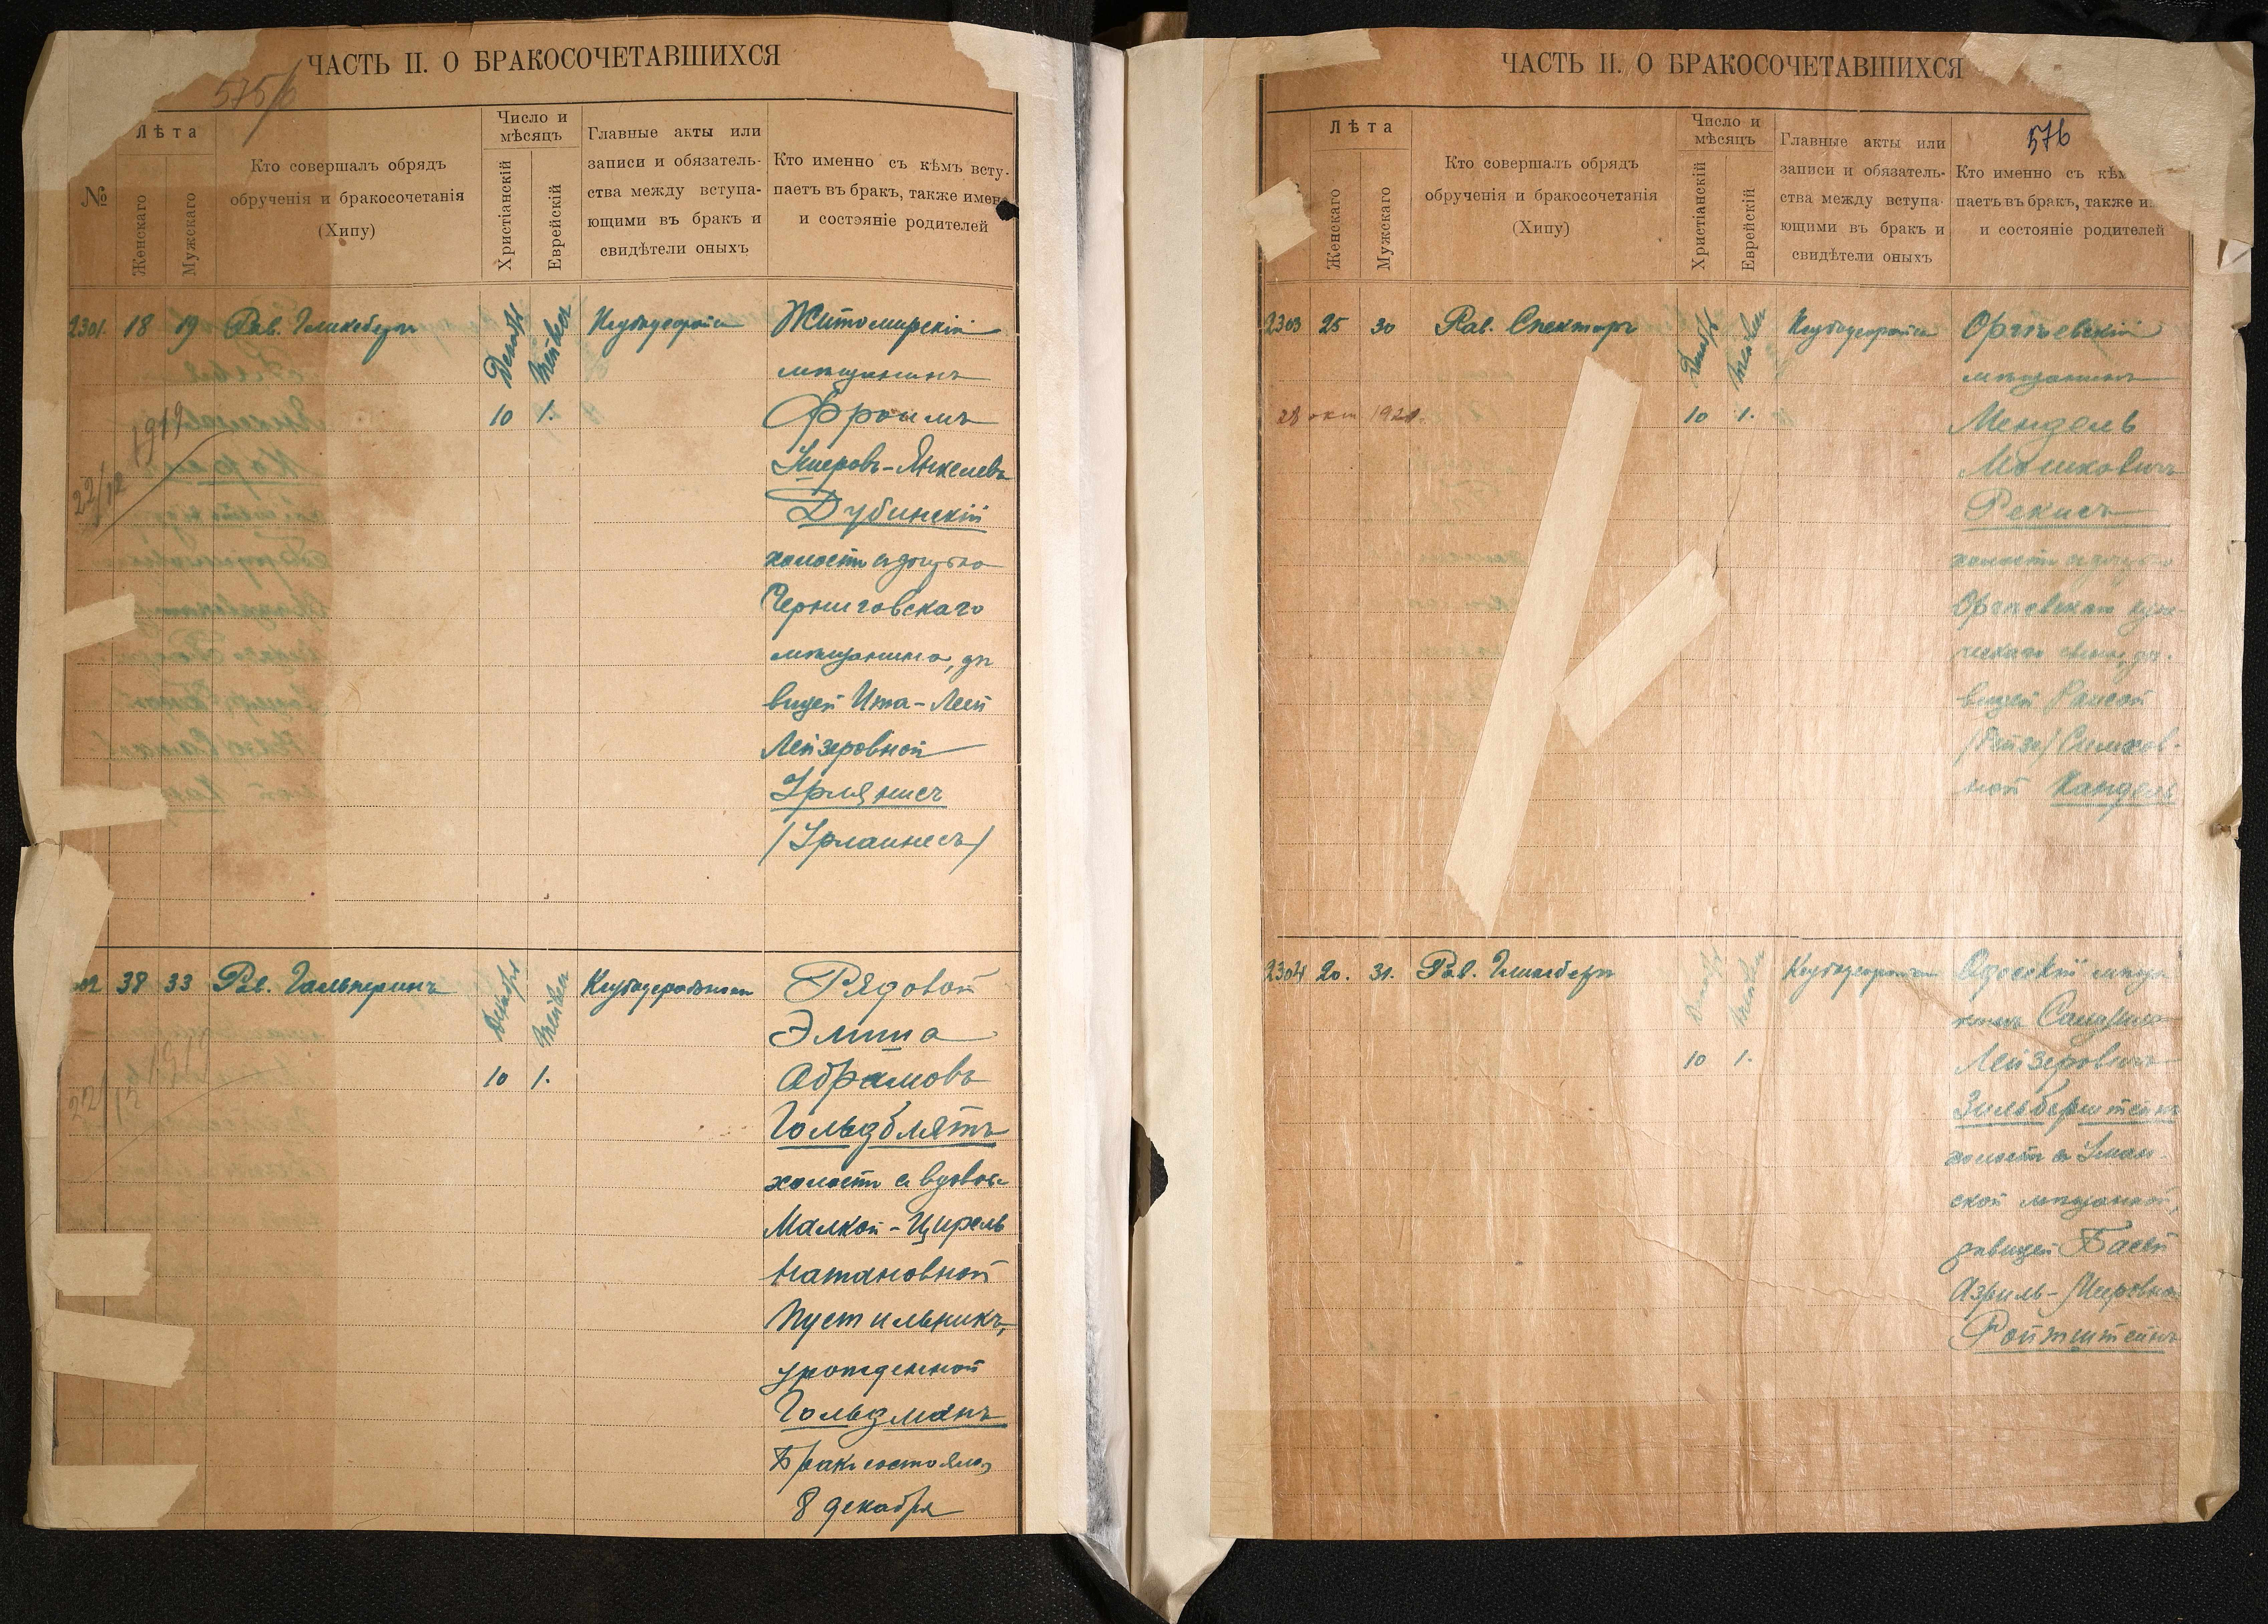 ЧАСТЬ II. О БРАКОСОЧЕТАВШИХСЯ
575/б
№
Лѣта
Женскаго
Мужскаго
Кто совершалъ обрядъ
обрученія и бракосочетанія
(Хипу)
Число и
мѣсяцъ
Христіанскій
Еврейскій
Главные акты или
записи и обязатель-
ства между вступа-
ющими въ бракъ и
свидѣтели оныхъ
Кто именно съ кѣмъ всту-
паетъ въ бракъ, также имена
и состояніе родителей
2301 18 19 Рав.
Декабр
10 1.
22/12 1919
Житомирскій
мѣщанинъ
Фроимъ
Янкелевъ
Дубинскій
холостъ съ дочерью
Черниговскаго
мѣщанина, дѣ
вицей Ита-Леей
Лейзеровной
Урлянисъ
/Урлаинесъ/
38 33 Рав. Гальперинъ
Декабр
10 1.
22/12 1919
Рядовой
Элиша
Абрамовъ
Гольдблятъ
холостъ съ вдовою
Малкой-Цирель
Натановной
Пустильникъ,
урожденной
Гольдманъ
Бракъ состоялся
8 декабря
ЧАСТЬ II. О БРАКОСОЧЕТАВШИХСЯ
576
Лѣта
Женскаго
Мужскаго
Кто совершалъ обрядъ
обрученія и бракосочетанія
(Хипу)
Число и
мѣсяцъ
Христіанскій
Еврейскій
Главные акты или
записи и обязатель-
ства между вступа-
ющими въ бракъ и
свидѣтели оныхъ
Кто именно съ кѣм
паетъ въ бракъ, также и
и состояніе родителей
2303 25 30 Рав. Спекторъ
Декабр
10 1.
28 окт 1921.
Оргѣевскій
мѣщанинъ
Мендель
Мошковичъ
Рекисъ
холостъ съ дочерью
Оргѣевскаго купе-
ческаго сына, дѣ-
вицей Рансой
/Бейзе/ Симхов-
ной Кандель
2304 20. 31. Рав.
Декабр
10 1.
Одесскій мѣща
нинъ
Лейзеровичъ
Зильберштейнъ
холостъ съ Уман-
ской мѣщанкой,
дѣвицей Басей
Азриль-Мееровной
Ройтштейнъ